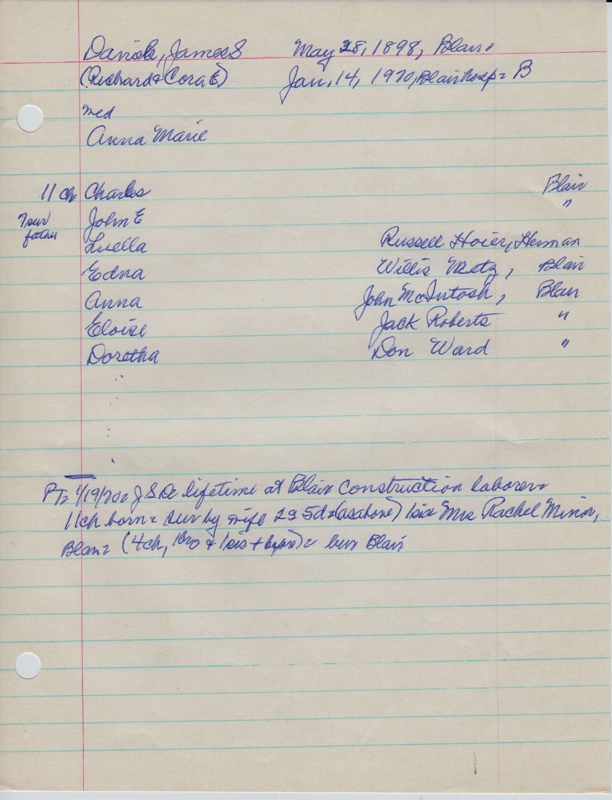 Daniels, James S May 28, 1898, Blair.
(Richard & Cora E) Jan, 14, 1970, Blair hosp = B
md
Anna Marie
11 ch Charles Blair
7 sur John E "
father
Luella Russell Hoier, Herman
Edna Willis Metz, Blair
Anna John McIntosh, Blair
Eloise Jack Roberts "
Doretha Don Ward "
PT= 1/19/70= J S D= lifetime at Blair Construction laborer=
11 ch born= sur by wife 2s 5d= (as above) sis Mrs Rachel Minor,
Blair= (4 ch, 1 bro & 1 sis + )= bur Blair